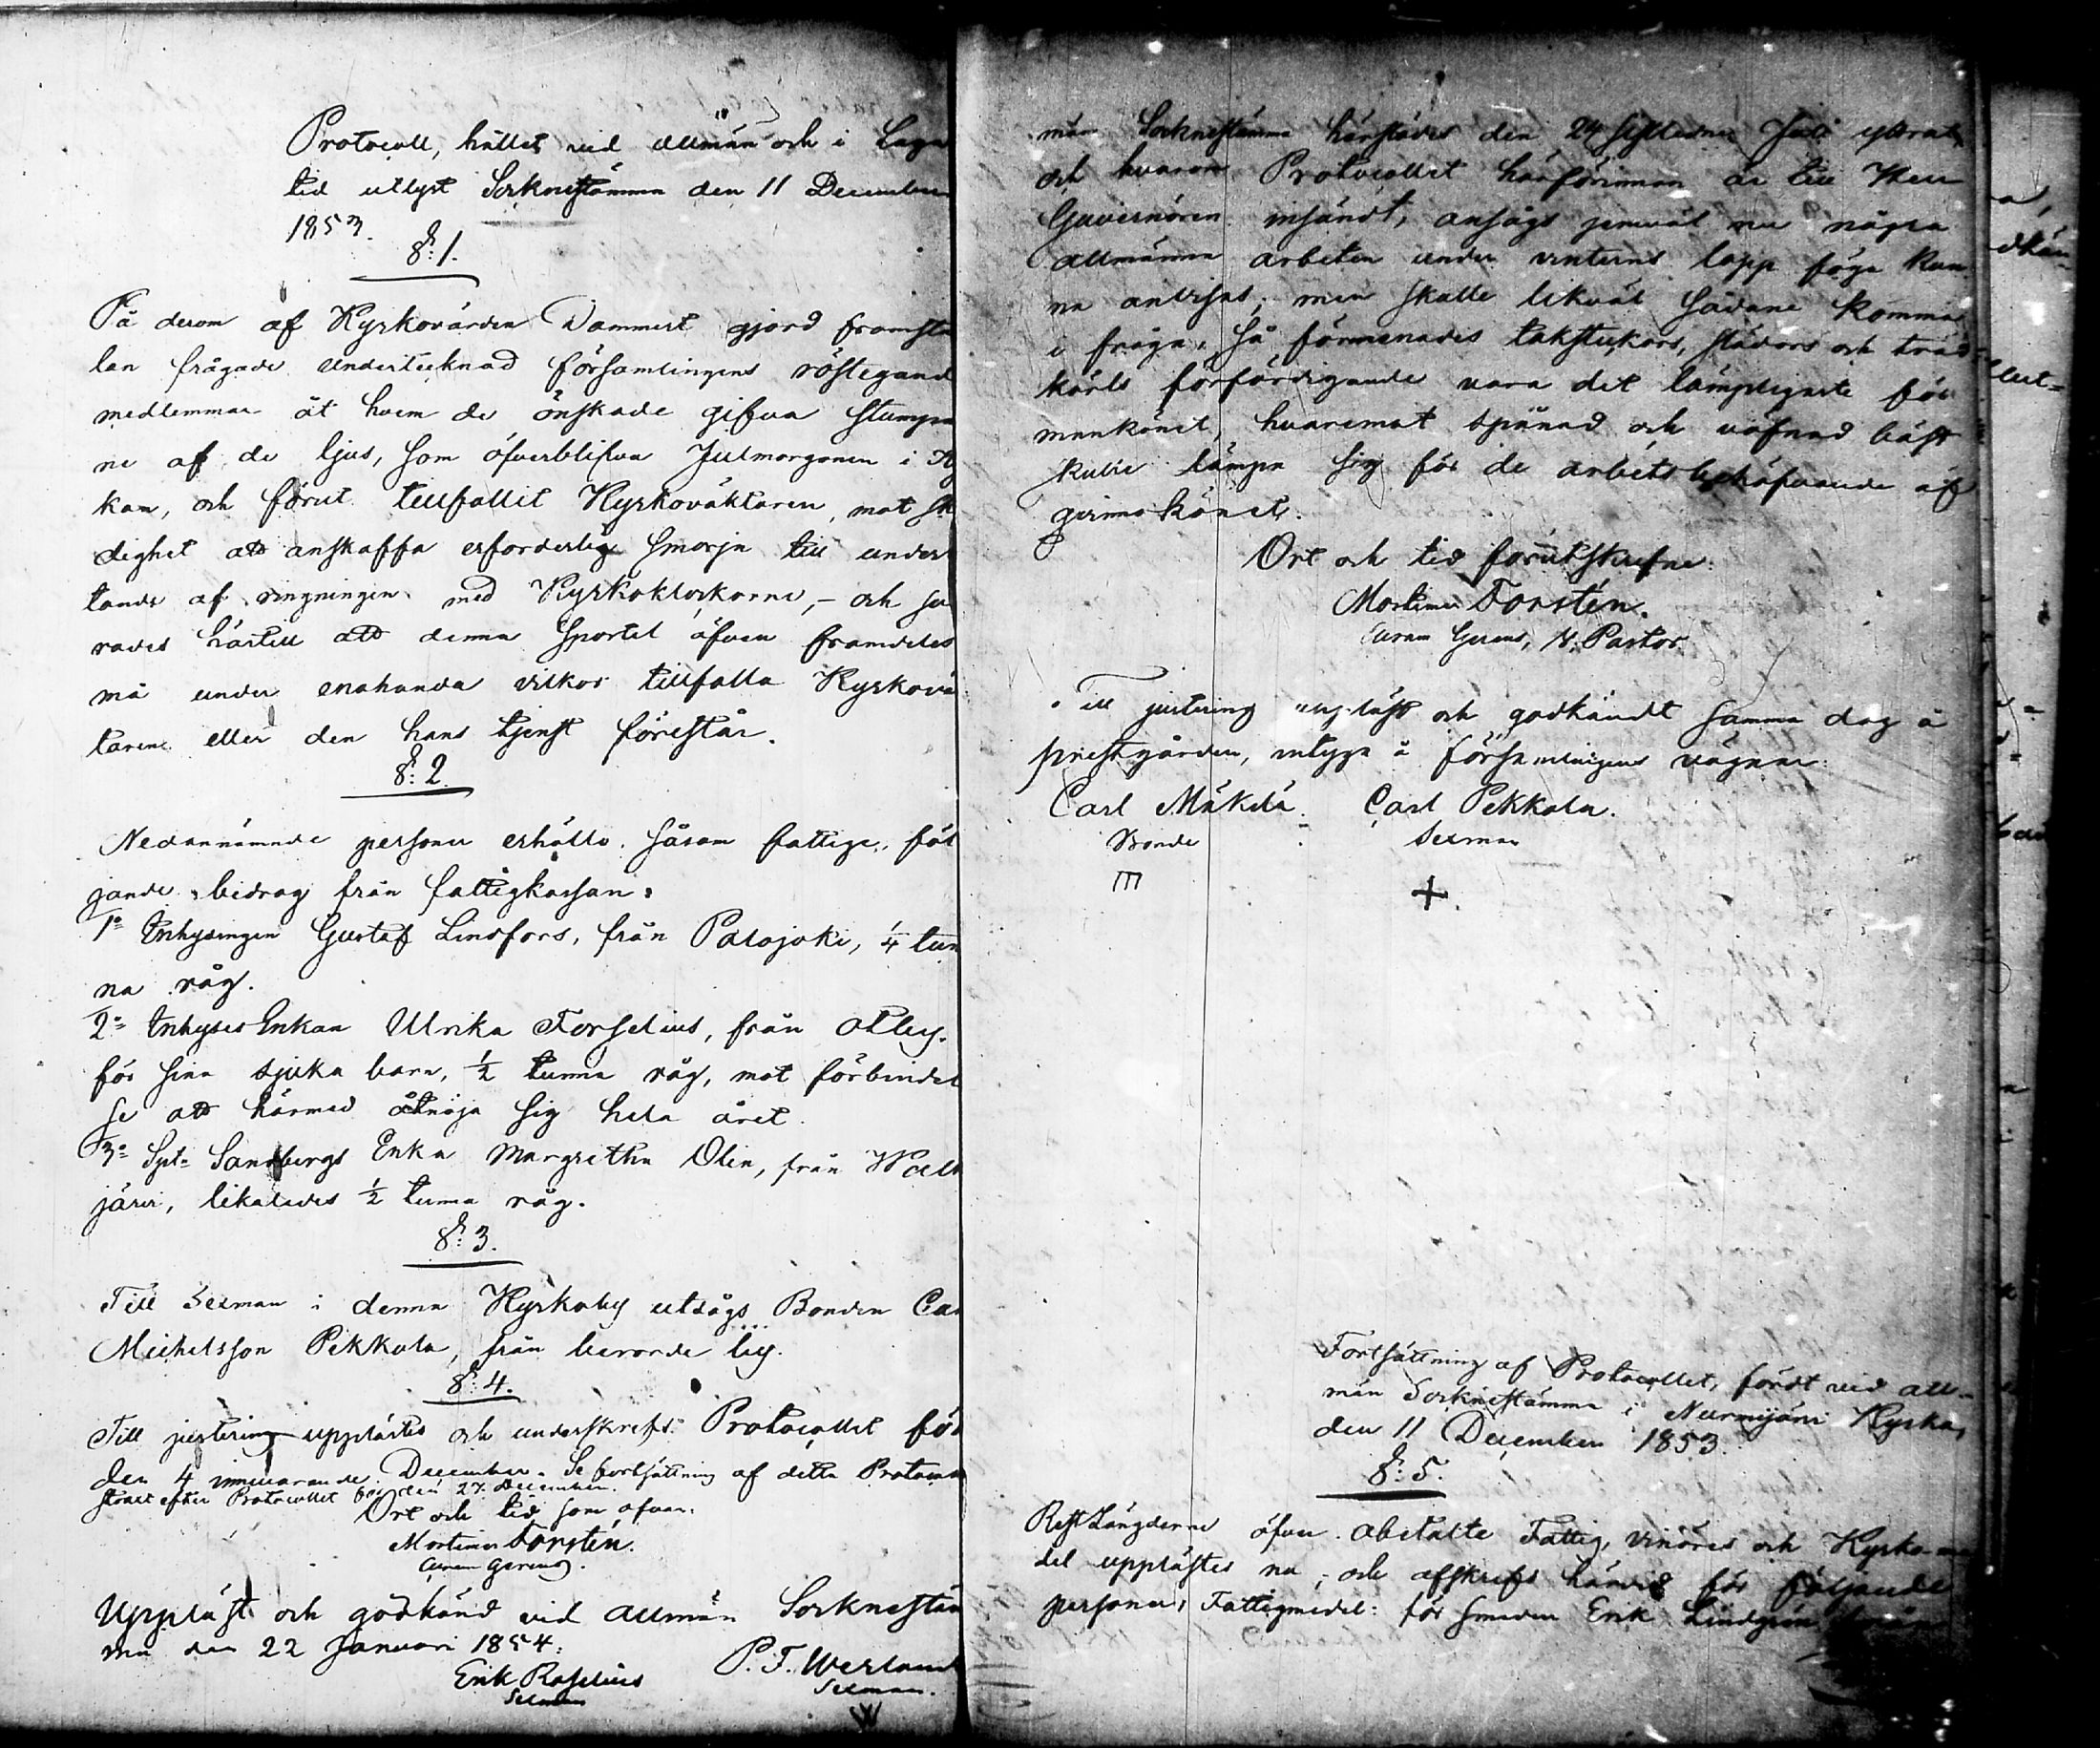 Protocoll, hållet vid allmän och i Laga
tid utlyst Socknestämma den 11 December
1853.
§: 1.
På derom af Kyrkovärden Dammert gjord framstä
lan frågade undertecknad församlingens röstegand
medlemmar åt hvem de önskade gifva stumpa
ne af de ljus, som öfverblifva Julmorgonen i Ky
kan, och förut tillfallit Kyrkoväktaren, mot sk
dighet att anskaffa erforderlig smorja till under
tande af ringningen med Kyrkoklockorne, – och sva
rades härtill att denna sportel äfven framdeles
må under enahanda vilkor tillfalla Kyrkovä
taren eller den hans tjenst förestår.
§: 2.
Nedannämnde personer erhöllo såsom fattige, föl
jande bidrag från fattigkassan:
1º Inhysingen Gustaf Lindfors, från Palojoki, 1/4 tun
na råg.
2º Inhyses Enkan Ulrika Forselius, från
för sina sjuka barn, 1/2 tunna råg, mot förbindel
se att härmed åtnöja sig hela året.
3º Sandbergs Enka Margretha Olin, från
järvi, likaledes 1/2 tunna råg.
§: 3.
Till Sexman i denna Kyrkoby utsågs Bonden Car
Michelsson Pekkola, från berörde by.
§: 4.
Till justering upplästes och underskrefs Protocollet för
den 4 innevarande December. Se fortsättning af detta Protocoll
straxt efter Protocollet för den 27 December.
Ort och tid som ofvan.
Mortimer Forstén.
Upplåst och godkänd vid allmän Socknestäm
ma den 22 Januari 1854:
Erik Roselius P. F. Werland
Sexman Sexman.
män Socknestämma härstädes den 24 sistledne Juli yttrat,
och hvarom Protocollet härförinnan är till Herr
Guvernören insändt, ansågs jemväl nu några
allmänna arbeten under vinterns lopp föga kun
na anvisas; men skulle likväl sådane komma
i fråga, så förmenades takstickors, slädors och träd
kärls förfärdigande vara det lämpligaste för
mankönet, hvaremot spånad och väfnad bäst
skulle lämpa sig för de arbetsbehöfvande af
qvinnokönet.
Ort och tid förutskrefne:
Mortimer Forstén.
N. Pastor.
Till justering uppläst och godkändt samma dag å
prestgården, intyga å församlingens vägnar:
Carl Mäkelä. Carl Pekkola.
Bonde Sexman
Fortsättning af Protocollet, fördt vid all-
män Socknestämma i Nurmijärvi Kyrka,
den 11 December 1853.
§: 5.
RestLängderne öfver obetalte Fattig, vinöres och Kyrko-
del upplästes nu, och afskrefs härvid för följande
personer, Fattigmedel: för smeden Erik Lindgrén